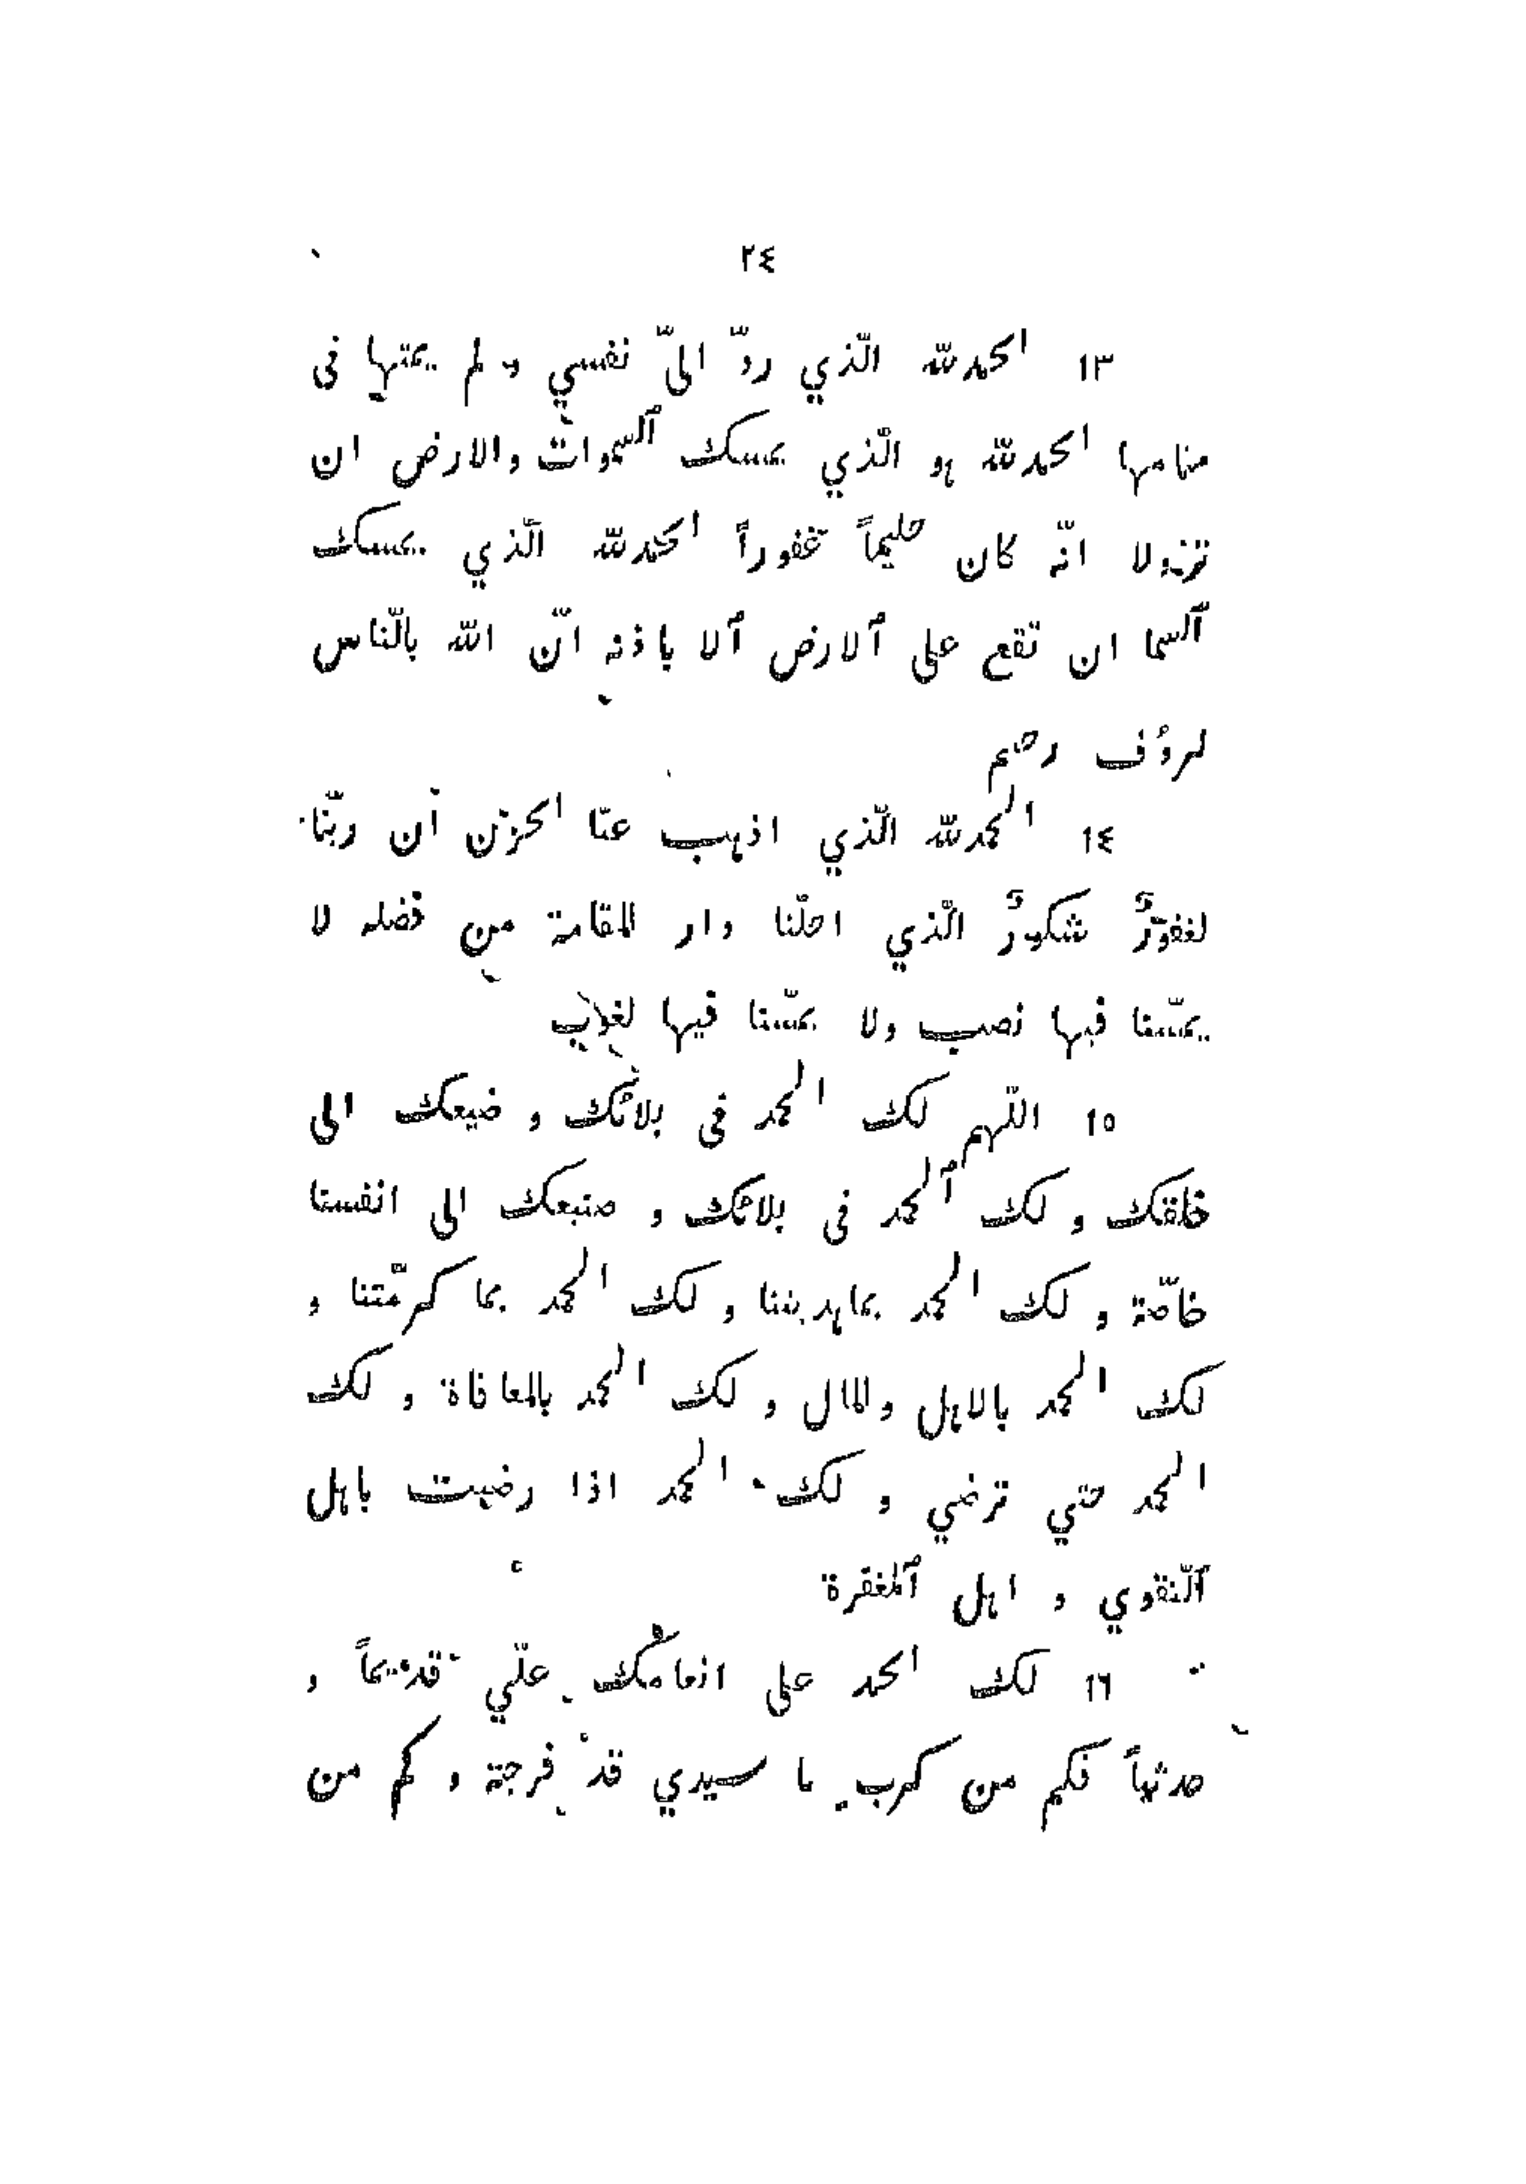 ٢٤
١٣ الحمدلله الّذي ردّ الىّ نفسي و لم يمتها فى
منامها الحمدلله هو الّذي يمسك ٱلسموات والارض ان
تزولا انّه كان حليماً غفوراً الحمدلله الّذي يمسك
ٱلسما ان تقع على ٱلارض ٱلا باذنه انّ الله بالنّاس
لروٴف رحيم
١٤ الحمدلله الّذي اذهب عنّا الحزن أن ربّنا
لغفورٌ شكورٌ الّذي احلّنا دار المقامة من فضله لا
يمسّنا فيها نصب ولا يمسّنا فيها لغوب
١٥ اللّهم لك الحمد فى بلائك و ضيعك الى
خلقك و لك ٱلحمد فى بلائك و صنيعك الى انفسنا
خاصّة و لك الحمد بماهديننا و لك الحمد بما كرمّتنا و
لك الحمد بالاهل والمال و لك الحمد بالمعافاة و لك
الحمد حتي ترضي و لك الحمد اذا رضيت باهل
ٱلتّقوي و اهل ٱلمغفرة
١٦ لك الحمد على انعامك علّي قديماً و
حدثياً فكم من كرب يا سيدي قد فرجة و كم من